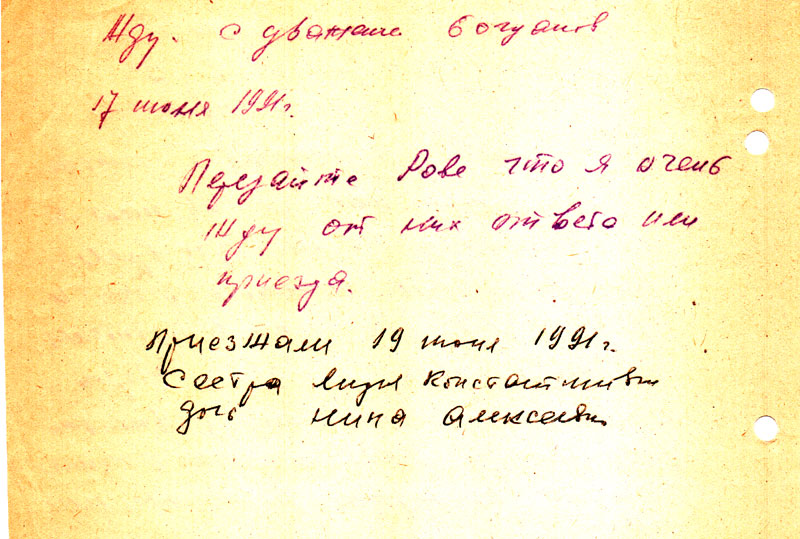 Жду. С уважение Богданов
17 июня 1991г.
Передайте Рове что я очень
жду от них ответа или
приезда.
Приезжали 19 июня 1991г.
Сестра Лидия Константиновн
дочь Нина Алексеевн